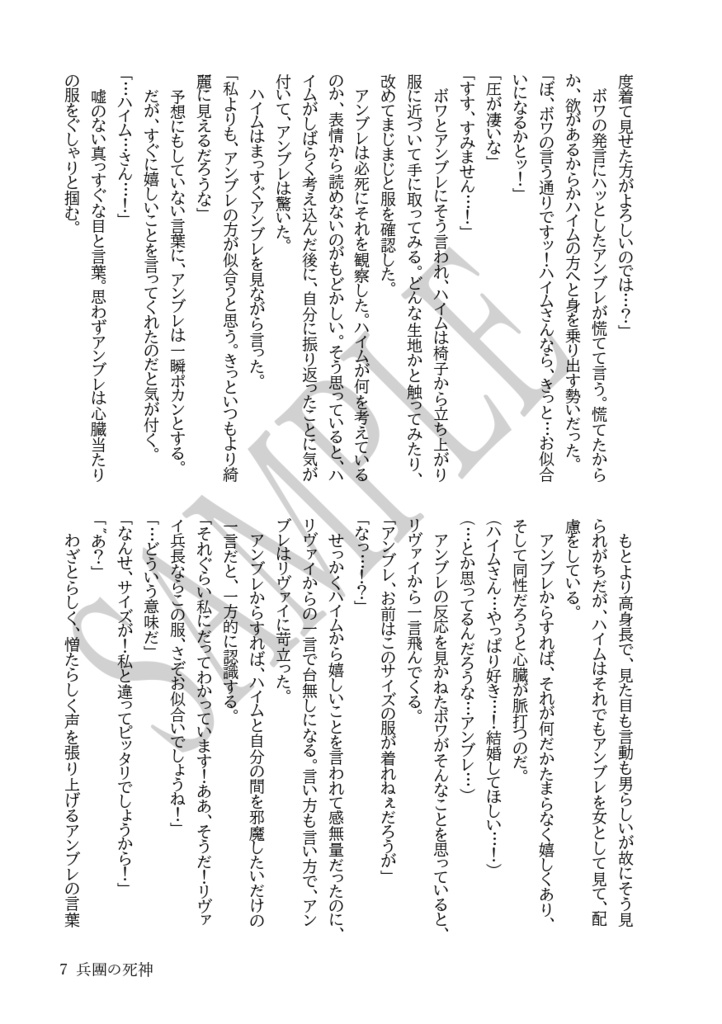 度着て見せた方がよろしいのでは…？」
　ボワの発言にハッとしたアンブレが慌てて言う。慌てたから
か、欲があるからかハイムの方へと身を乗り出す勢いだった。
「ぼ、ボワの言う通りですッ！ハイムさんなら、きっと…お似合
いになるかとッ！」
「圧が凄いな」
「すす、すみません…！」
　ボワとアンブレにそう言われ、ハイムは椅子から立ち上がり
服に近づいて手に取ってみる。どんな生地かと触ってみたり、
改めてまじまじと服を確認した。
　アンブレは必死にそれを観察した。ハイムが何を考えている
のか、表情から読めないのがもどかしい。そう思っていると、ハ
イムがしばらく考え込んだ後に、自分に振り返ったことに気が
付いて、アンブレは驚いた。
　ハイムはまっすぐアンブレを見ながら言った。
「私よりも、アンブレの方が似合うと思う。きっといつもより綺
麗に見えるだろうな」
　予想にもしていない言葉に、アンブレは一瞬ポカンとする。
　だが、すぐに嬉しいことを言ってくれたのだと気が付く。
「…ハイム…さん…！」
　嘘のない真っすぐな目と言葉。思わずアンブレは心臓当たり
の服をぐしゃりと掴む。
　もとより高身長で、見た目も言動も男らしいが故にそう見
られがちだが、ハイムはそれでもアンブレを女として見て、配
慮をしている。
　アンブレからすれば、それが何だかたまらなく嬉しくあり、
そして同性だろうと心臓が脈打つのだ。
（ハイムさん…やっぱり好き…！結婚してほしい…！）
（…とか思ってるんだろうな…アンブレ…）
　アンブレの反応を見かねたボワがそんなことを思っていると、
リヴァイから一言飛んでくる。
「アンブレ、お前はこのサイズの服が着れねぇだろうが」
「なっ…！？」
　せっかくハイムから嬉しいことを言われて感無量だったのに、
リヴァイからの一言で台無しになる。言い方も言い方で、アン
ブレはリヴァイに苛立った。
　アンブレからすれば、ハイムと自分の間を邪魔したいだけの
一言だと、一方的に認識する。
「それぐらい私にだってわかっています！ああ、そうだ！リヴァ
イ兵長ならこの服、さぞお似合いでしょうね！」
「…どういう意味だ」
「なんせ、サイズが！私と違ってピッタリでしょうから！」
「゛あ？」
　わざとらしく、憎たらしく声を張り上げるアンブレの言葉
7 兵團の死神
SAMPLE